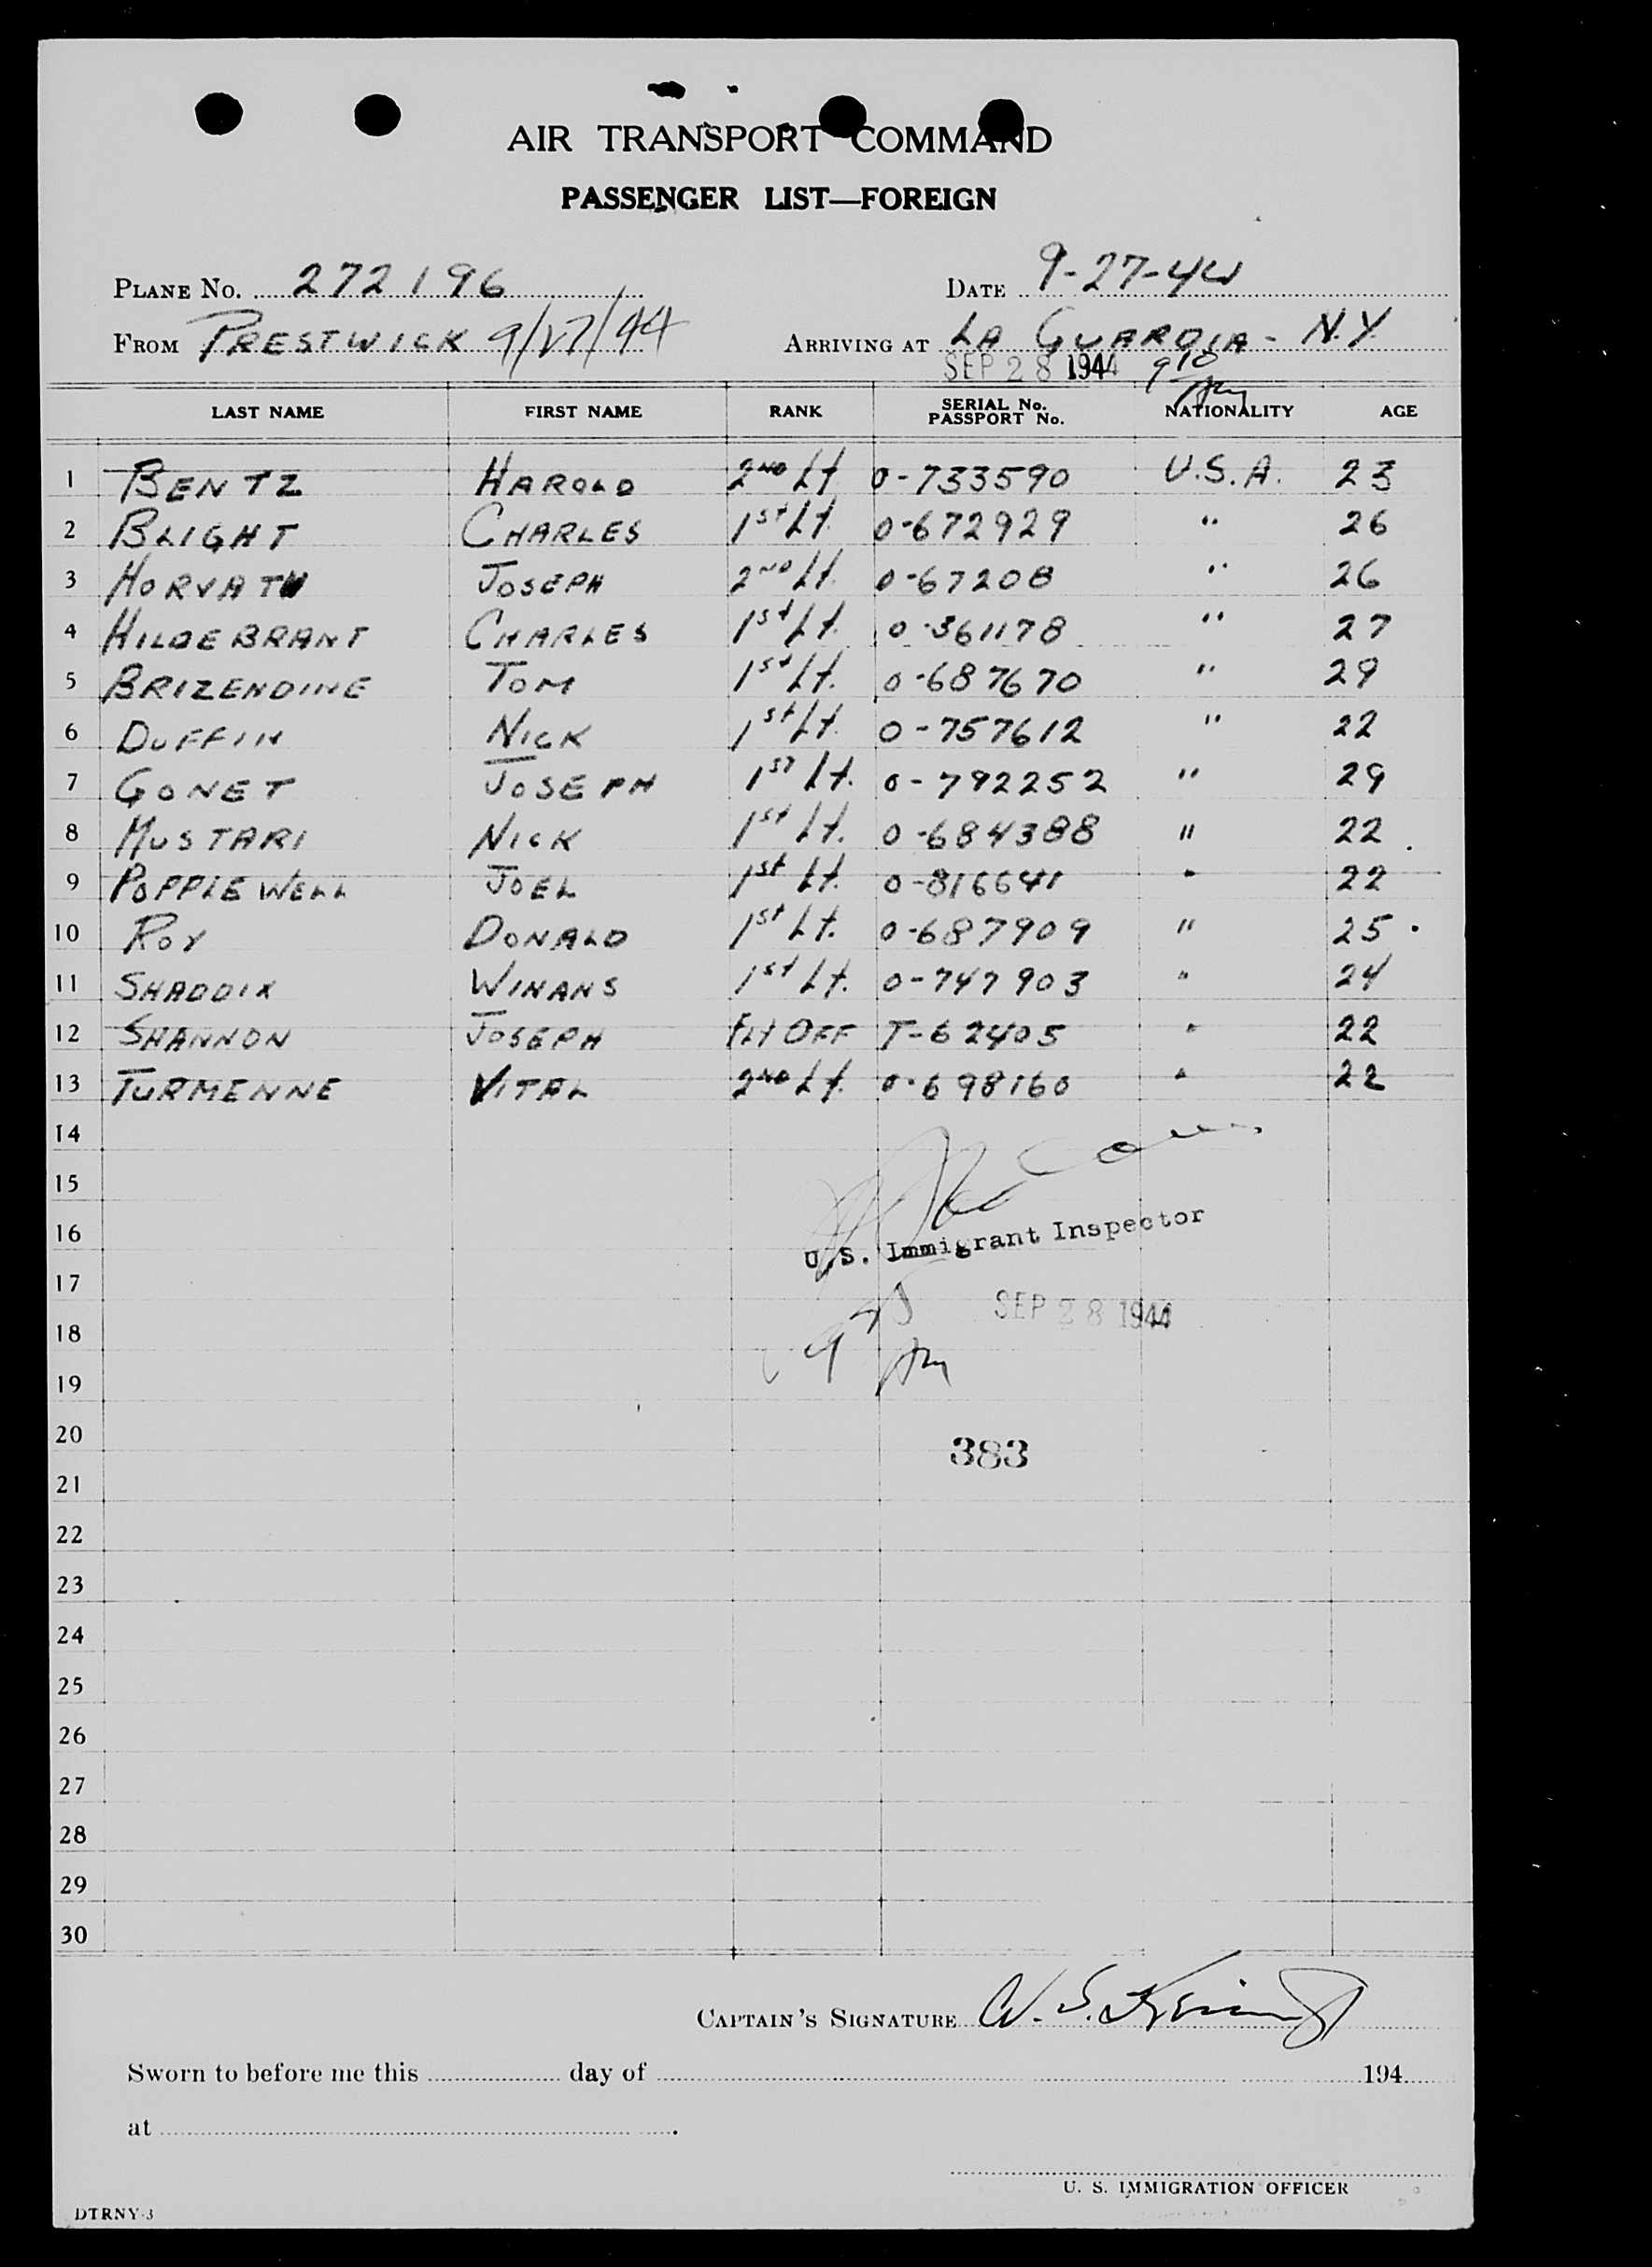 AIR TRANSPORT COMMAND
PASSENGER LIST—FOREIGN
PLANE NO. 272196 DATE 9-27-44
FROM PRESTWICK 9/27/44 ARRIVING AT LA GUARDIA - N.Y.
SEP 28 1944 9 10 AM
LAST NAME FIRST NAME RANK SERIAL No. PASSPORT No. NATIONALITY AGE
1 BENTZ HAROLD 2ND Lt 0-733590 U.S.A. 23
2 BLIGHT CHARLES 1st Lt. 0-672929 " 26
3 HORVATH JOSEPH 2ND Lt. 0-67208 " 26
4 HILDEBRANT CHARLES 1st Lt. 0-361178 " 27
5 BRIZENDINE TOM 1st Lt. 0-687670 " 29
6 DUFFIN NICK 1st Lt. 0-757612 " 22
7 GONET JOSEPH 1ST Lt. 0-792252 " 29
8 MUSTARI NICK 1st Lt. 0-684388 " 22
9 POPPLEWELL JOEL 1st Lt. 0-816641 " 22
10 ROY DONALD 1st Lt. 0-687909 " 25
11 SHADDIX WINANS 1st Lt. 0-747903 " 24
12 SHANNON JOSEPH Flt OFF T-62405 " 22
13 TURMENNE VITAL 2ND Lt. 0-698160 " 22
14
15
16
U.S. Immigrant Inspector
17
SEP 28 1944
18
9 AM
19
20
383
21
22
23
24
25
26
27
28
29
30
CAPTAIN'S SIGNATURE W. S.
Sworn to before me this day of 194
at
U. S. IMMIGRATION OFFICER
DTRNY-3